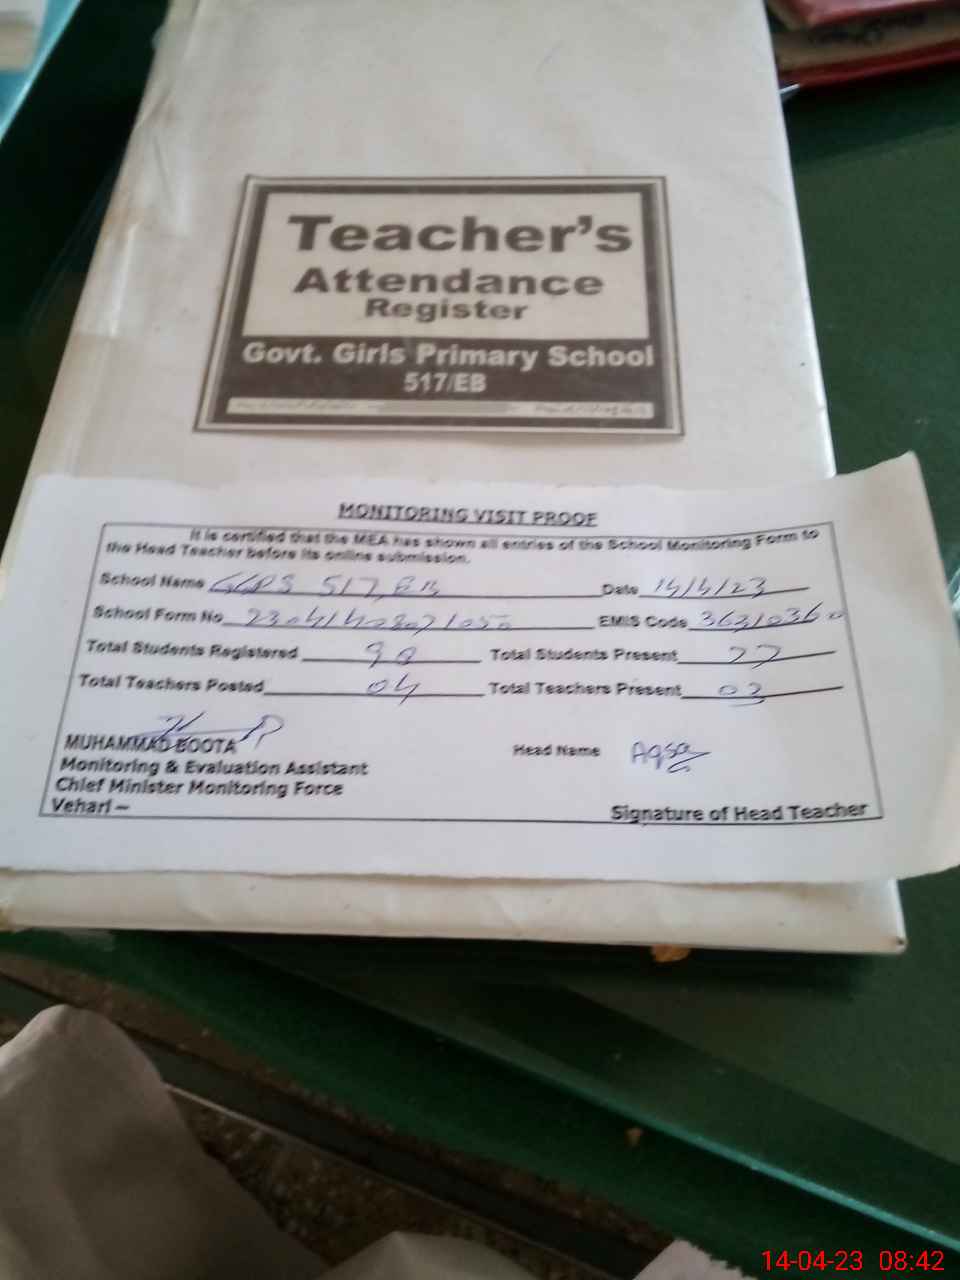 Teacher's
Attendance
Register
Govt. Girls Primary School
517/EB
MONITORING VISIT PROOF
It is certified that the MEA has shown all entries of the School Monitoring Form to
the Head Teacher before its online submission.
School Name GGPS 517, EB Date 14/4/23
School Form No EMIS Code 36310360
Total Students Registered 90 Total Students Present 77
Total Teachers Posted 04 Total Teachers Present 03
MUHAMMAD BOOTA Head Name Aqsa
Monitoring & Evaluation Assistant
Chief Minister Monitoring Force
Vehari – Signature of Head Teacher
14-04-23 08:42